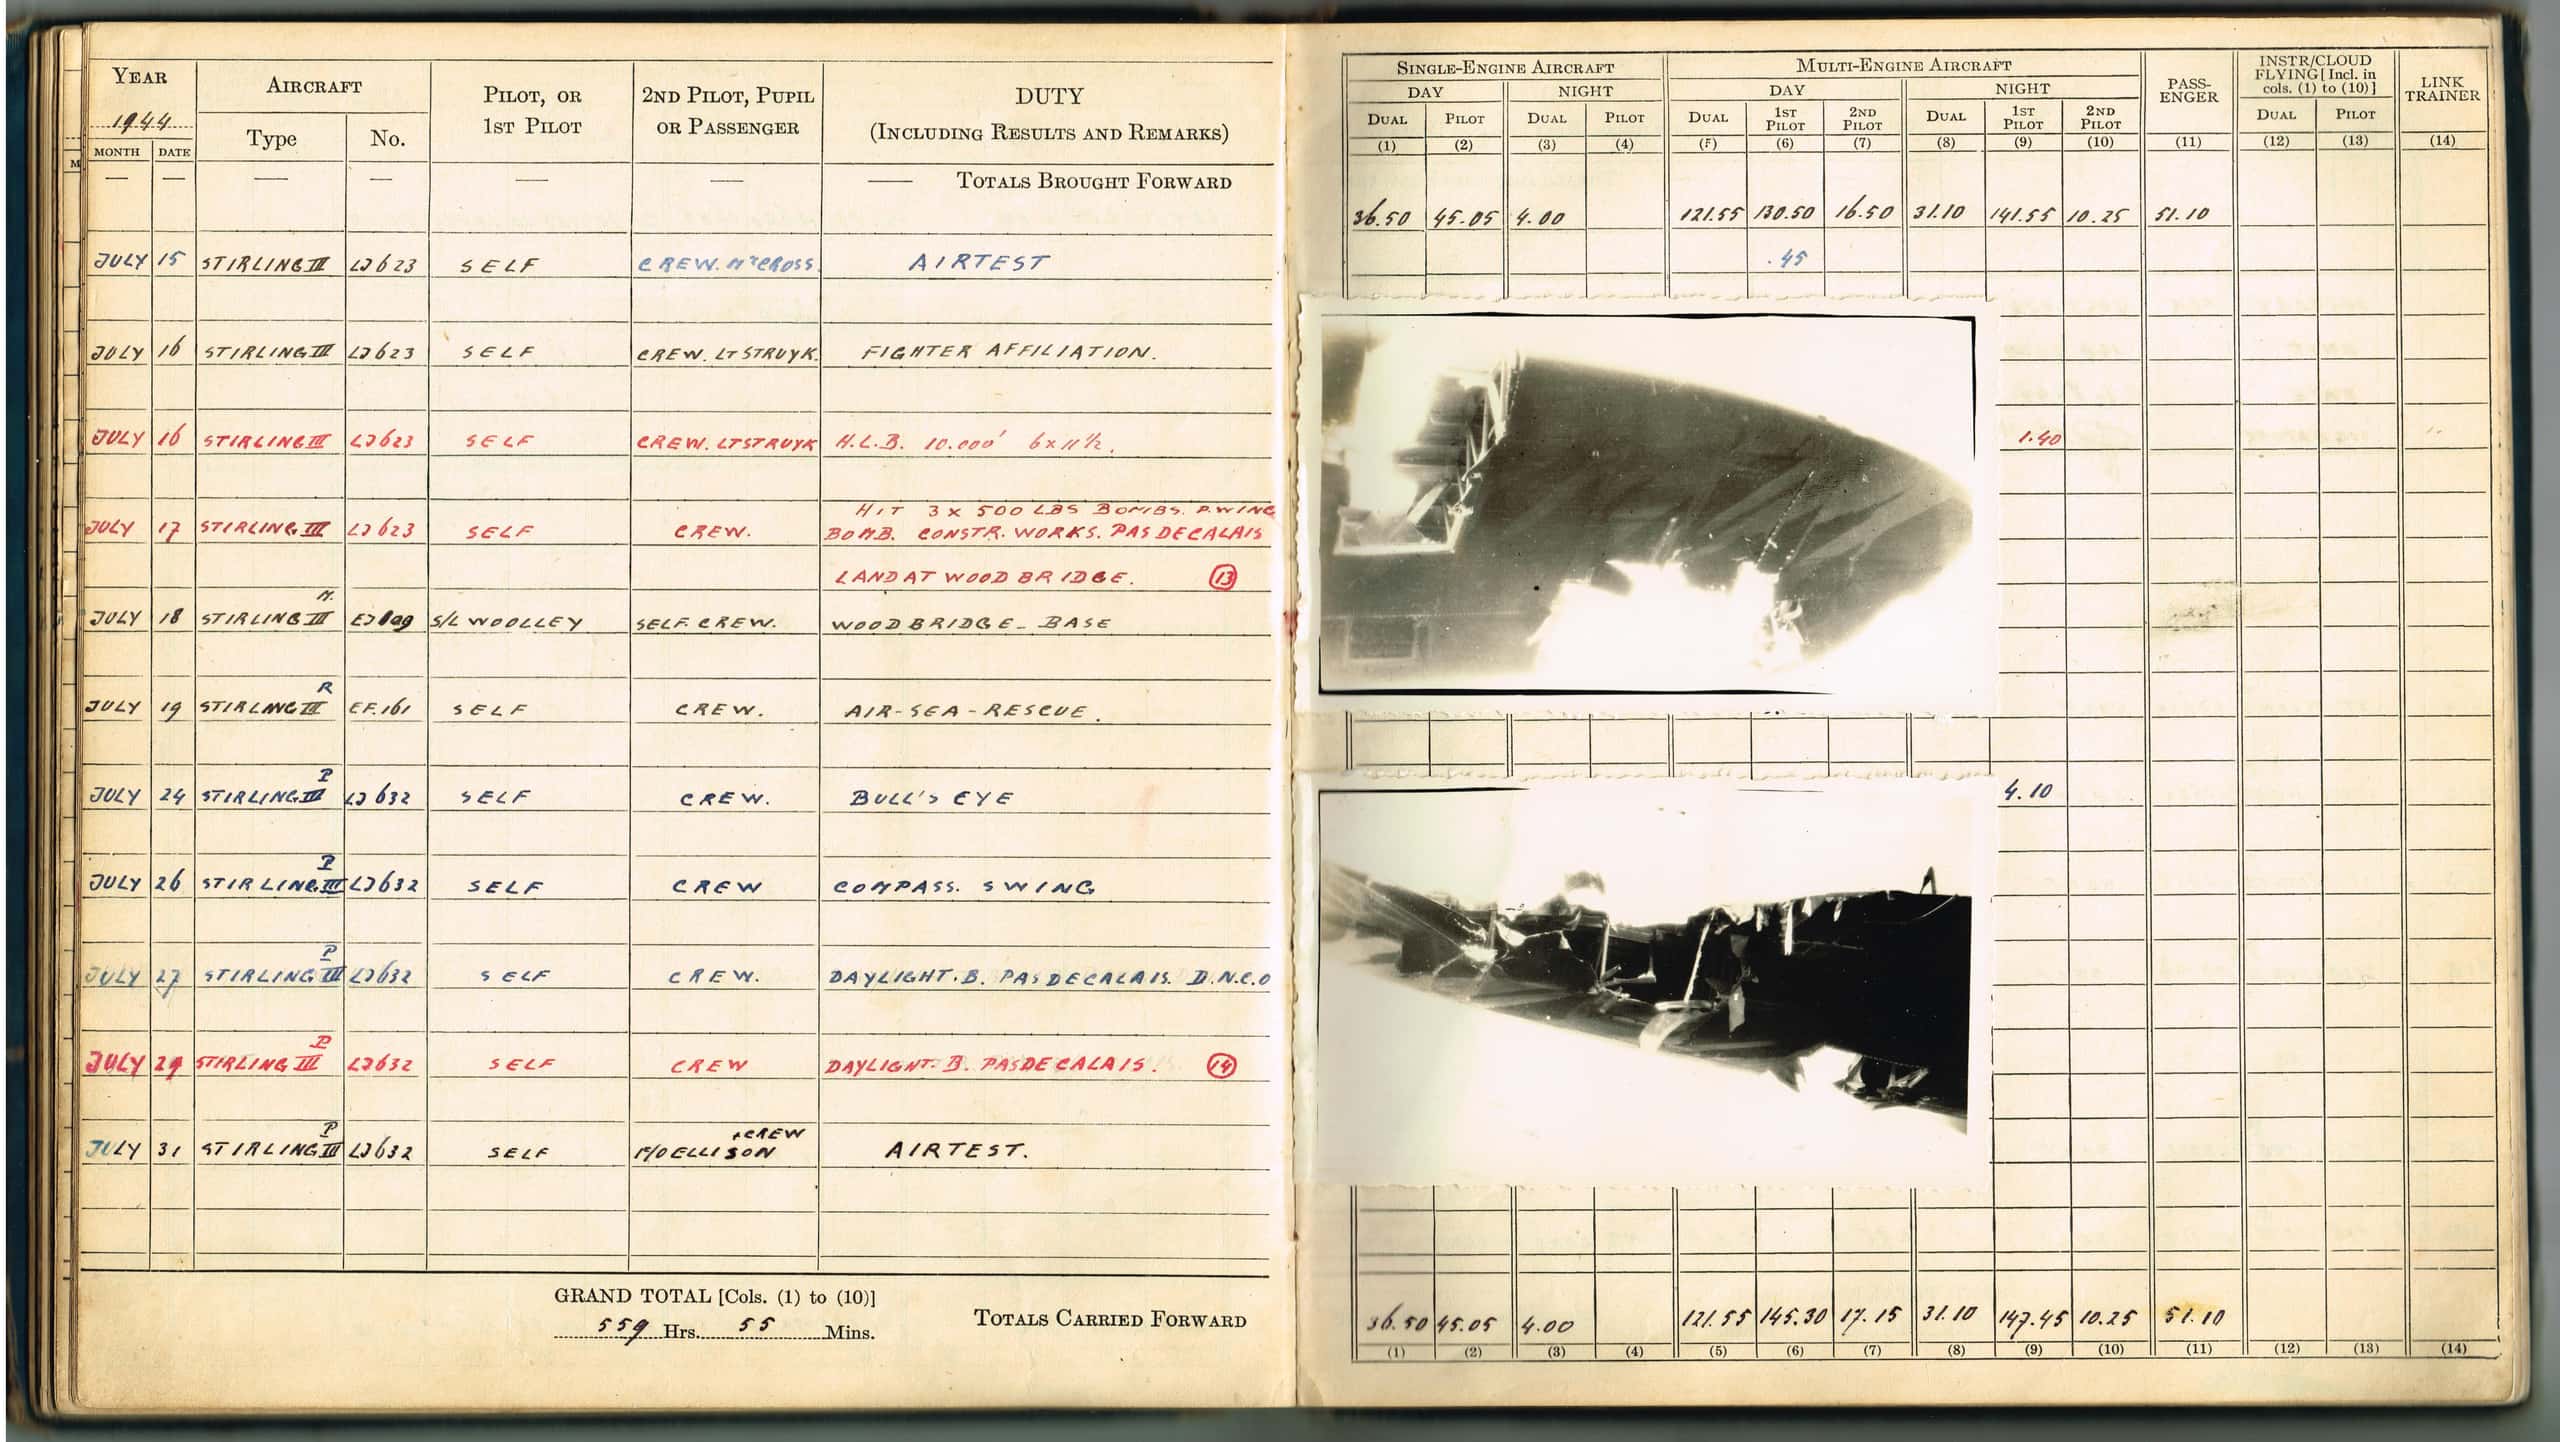 YEAR AIRCRAFT PILOT, OR 1ST PILOT 2ND PILOT, PUPIL OR PASSENGER DUTY (INCLUDING RESULTS AND REMARKS)
1944 Type No.
MONTH DATE
— — — — — — — TOTALS BROUGHT FORWARD
JULY 15 STIRLING III LJ623 SELF CREW. McCROSS. AIRTEST
JULY 16 STIRLING III LJ623 SELF CREW. LT STRUYK. FIGHTER AFFILIATION.
JULY 16 STIRLING III LJ623 SELF CREW. LT STRUYK H.L.B. 10.000' 6x11½.
HIT 3 x 500 LBS BOMBS. P.WING
JULY 17 STIRLING III LJ623 SELF CREW. BOMB. CONSTR. WORKS. PAS DE CALAIS
LAND AT WOODBRIDGE. 13
M.
JULY 18 STIRLING III S/L WOOLLEY SELF. CREW. WOODBRIDGE - BASE
R
JULY 19 STIRLING III EF.161 SELF CREW. AIR-SEA-RESCUE.
P
JULY 24 STIRLING III LJ632 SELF CREW. BULL'S EYE
P
JULY 26 STIRLING III LJ632 SELF CREW COMPASS. SWING
P
JULY 27 STIRLING III LJ632 SELF CREW. DAYLIGHT. B. PAS DE CALAIS. D.N.C.O
P
JULY 29 STIRLING III LJ632 SELF CREW DAYLIGHT. B. PAS DE CALAIS. 14
P +CREW
JULY 31 STIRLING III LJ632 SELF F/O ELLISON AIRTEST.
GRAND TOTAL [Cols. (1) to (10)]
559 Hrs. 55 Mins.
TOTALS CARRIED FORWARD
SINGLE-ENGINE AIRCRAFT MULTI-ENGINE AIRCRAFT PASS-ENGER INSTR/CLOUD FLYING [Incl. in cols. (1) to (10)] LINK TRAINER
DAY NIGHT DAY NIGHT
DUAL PILOT DUAL PILOT DUAL 1ST PILOT 2ND PILOT DUAL 1ST PILOT 2ND PILOT DUAL PILOT
(1) (2) (3) (4) (5) (6) (7) (8) (9) (10) (11) (12) (13) (14)
36.50 45.05 4.00 121.55 130.50 16.50 31.10 141.55 10.25 51.10
.45
1.40
4.10
36.50 45.05 4.00 121.55 145.30 17.15 31.10 147.45 10.25 51.10
(1) (2) (3) (4) (5) (6) (7) (8) (9) (10) (11) (12) (13) (14)